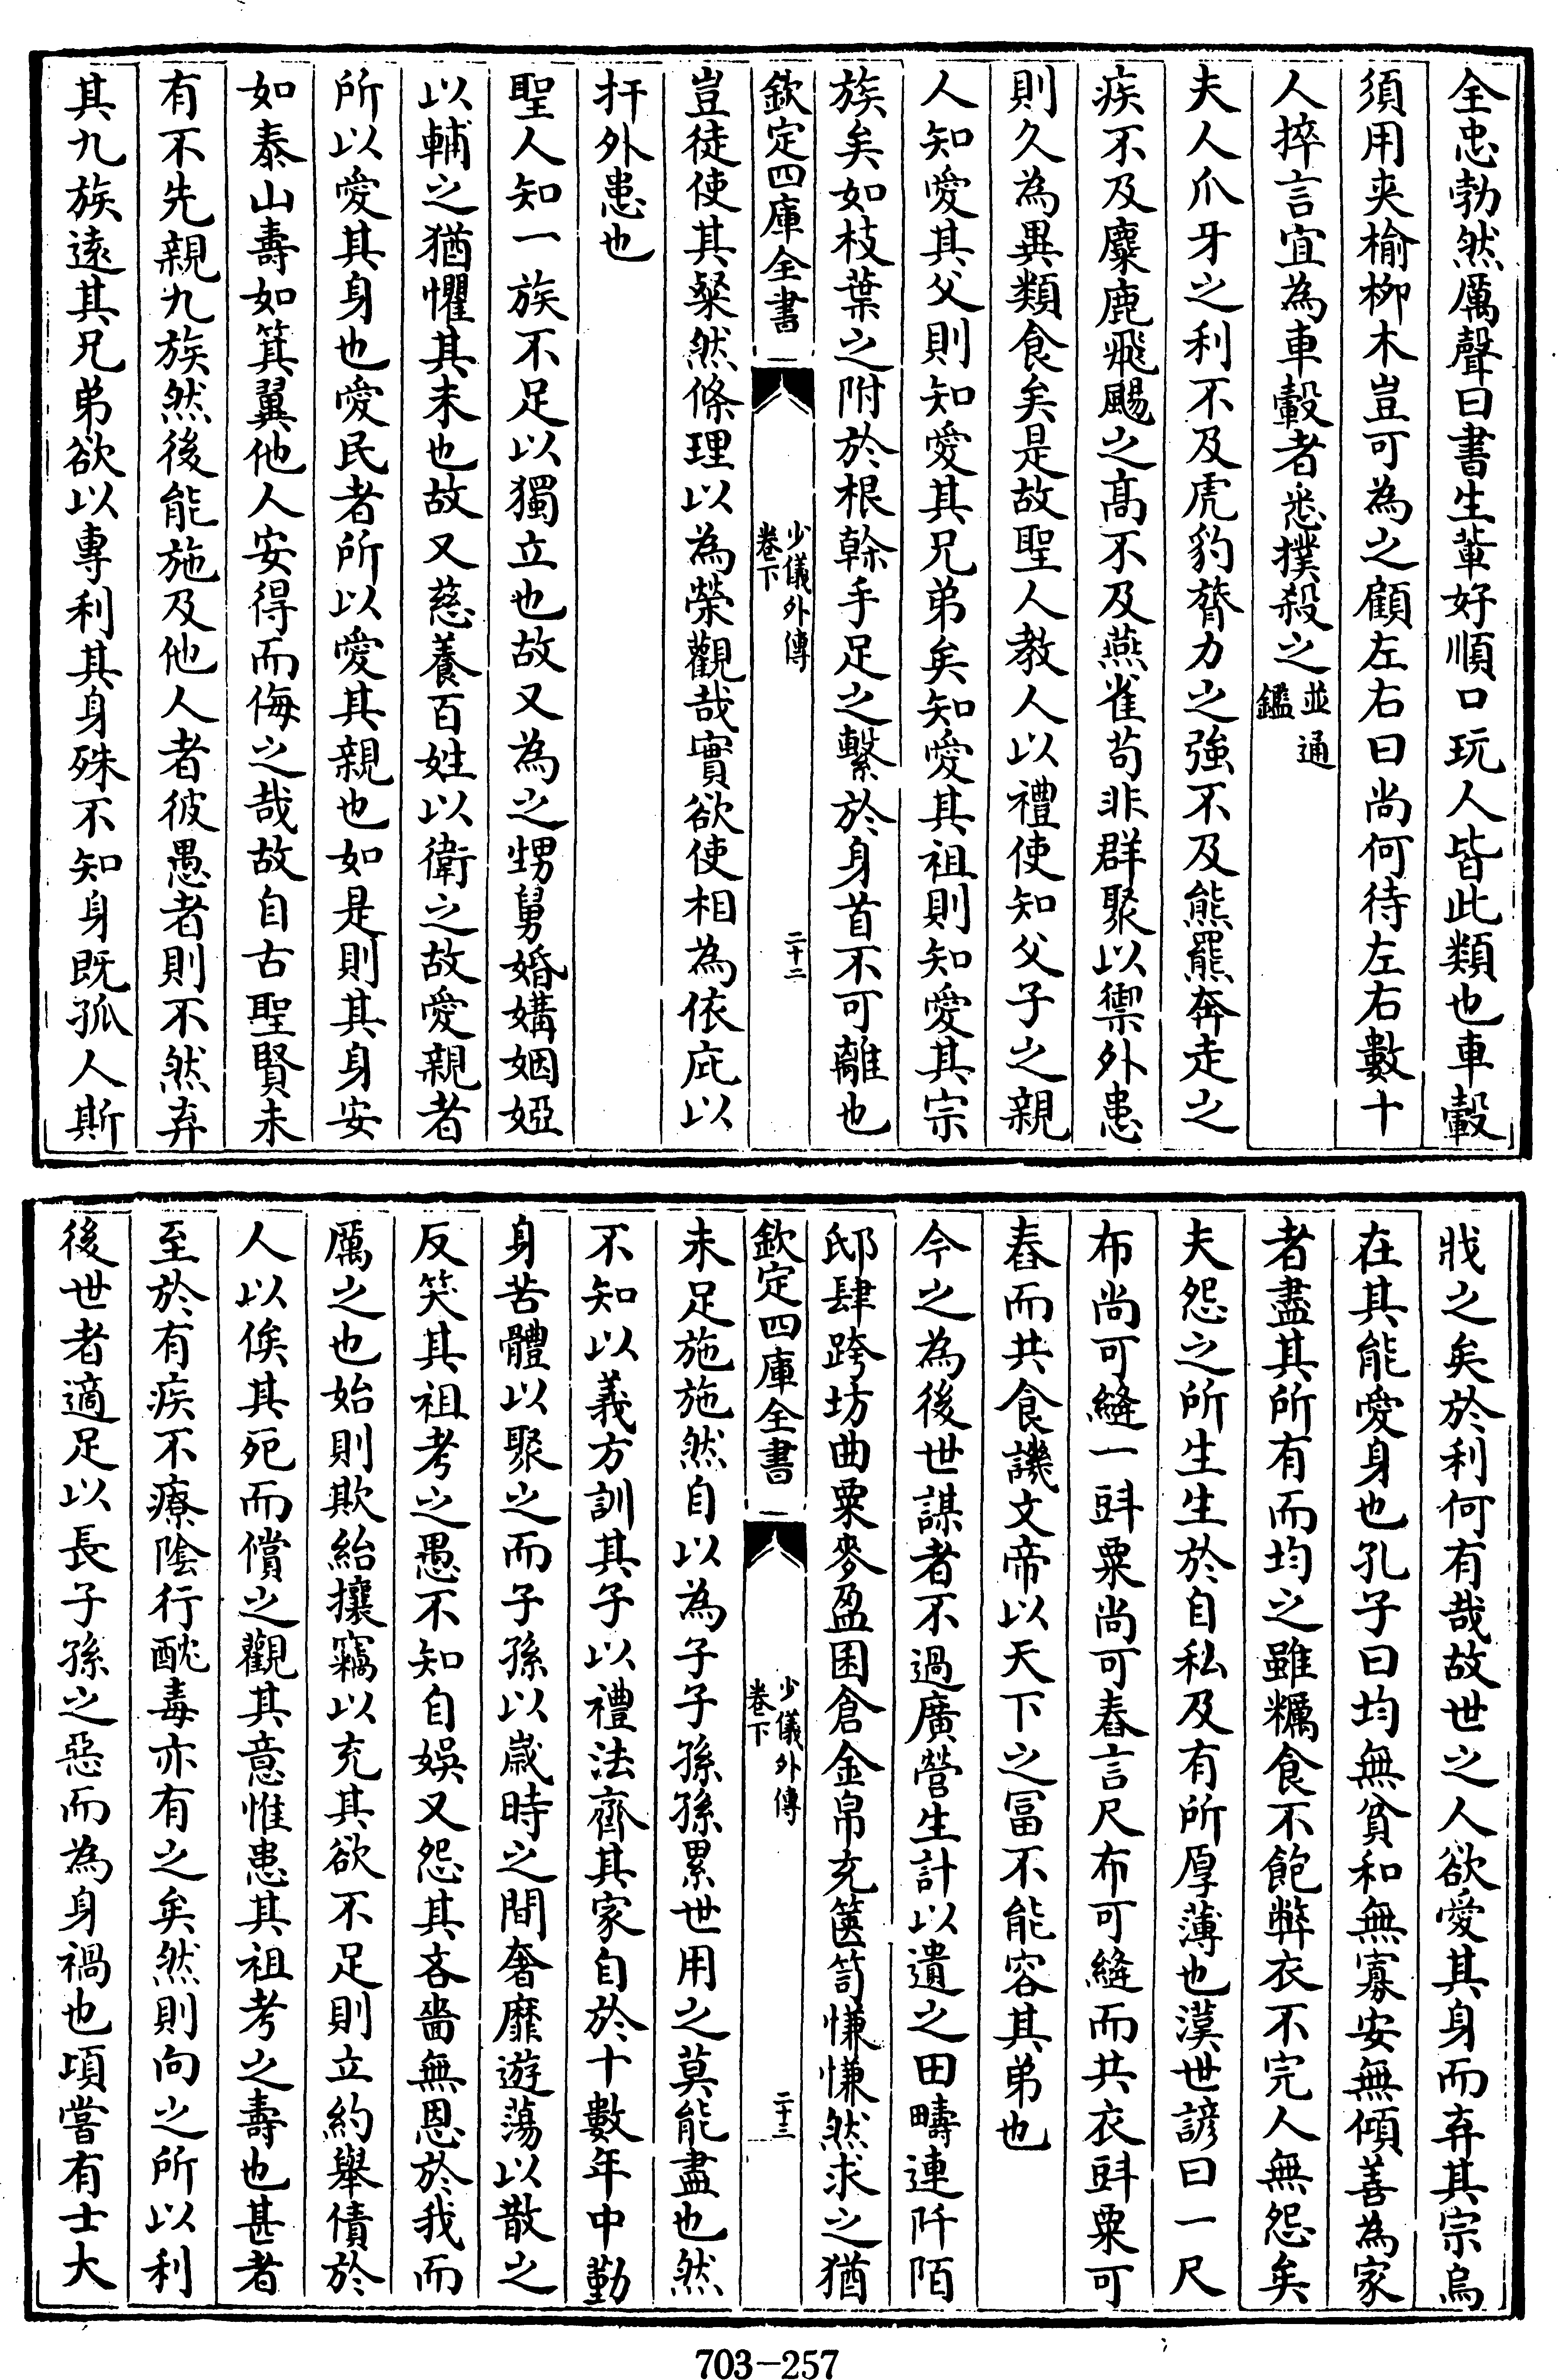 全忠勃然厲聲曰書生輩好順口玩人皆此類也車轂
須用夾榆柳木豈可為之顧左右曰尚何待左右數十
人捽言宜為車轂者悉撲殺之並通
鑑
夫人爪牙之利不及虎豹膂力之強不及熊羆奔走之
疾不及麋鹿飛颺之髙不及燕雀苟非群聚以禦外患
則久為異類食矣是故聖人教人以禮使知父子之親
人知愛其父則知愛其兄弟矣知愛其祖則知愛其宗
族矣如枝葉之附於根幹手足之繫於身首不可離也
欽定四庫全書
少儀外傳
卷下
二十二
豈徒使其粲然條理以為榮觀哉實欲使相為依庇以
扞外患也
聖人知一族不足以獨立也故又為之甥舅婚媾姻婭
以輔之猶懼其未也故又慈養百姓以衛之故愛親者
所以愛其身也愛民者所以愛其親也如是則其身安
如泰山壽如箕翼他人安得而侮之哉故自古聖賢未
有不先親九族然後能施及他人者彼愚者則不然弃
其九族遠其兄弟欲以專利其身殊不知身既孤人斯
戕之矣於利何有哉故世之人欲愛其身而弃其宗烏
在其能愛身也孔子曰均無貧和無寡安無傾善為家
者盡其所有而均之雖糲食不飽弊衣不完人無怨矣
夫怨之所生生於自私及有所厚薄也漢世諺曰一尺
布尚可縫一㪷粟尚可舂言尺布可縫而共衣㪷粟可
舂而共食譏文帝以天下之冨不能容其弟也
今之為後世謀者不過廣營生計以遺之田疇連阡陌
邸肆跨坊曲粟麥盈囷倉金帛充篋笥慊慊然求之猶
欽定四庫全書
少儀外傳
卷下
二十三
未足施施然自以為子子孫孫累世用之莫能盡也然
不知以義方訓其子以禮法齊其家自於十數年中勤
身苦體以聚之而子孫以歲時之間奢靡遊蕩以散之
反笑其祖考之愚不知自娛又怨其吝嗇無恩於我而
厲之也始則欺紿攘竊以充其欲不足則立約舉債於
人以俟其死而償之觀其意惟患其祖考之壽也甚者
至於有疾不療陰行酖毒亦有之矣然則向之所以利
後世者適足以長子孫之惡而為身禍也項嘗有士大
703-257